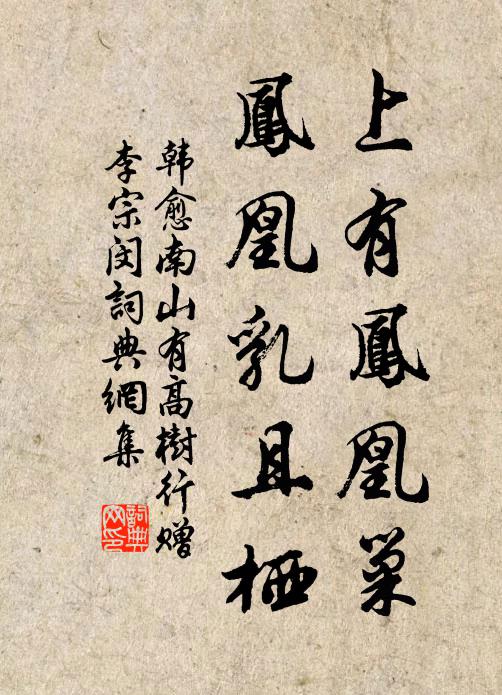 上有鳳凰巢
鳳凰乳且栖
韩愈南山有高樹行赠
李宗闵詞典網集
詞典網印